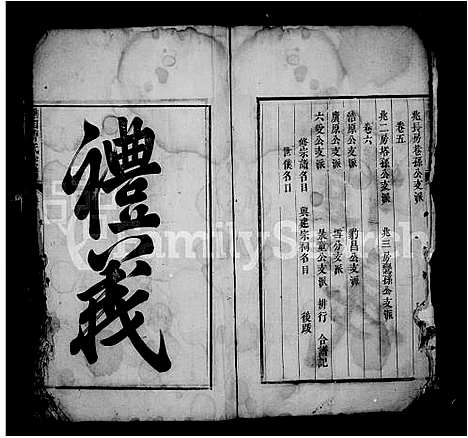 兆長房卷孫公支派
卷五
兆二房塔孫公支派 兆三房璽孫公支派
卷六
浩原公支派 豹昌公支派
廣原公支派 雪分支派
六愛公支派 公支派 排行 合譜記
修宗譜名目 與建宗祠名目 後跋
世僕名目
禮義
FamilySearch